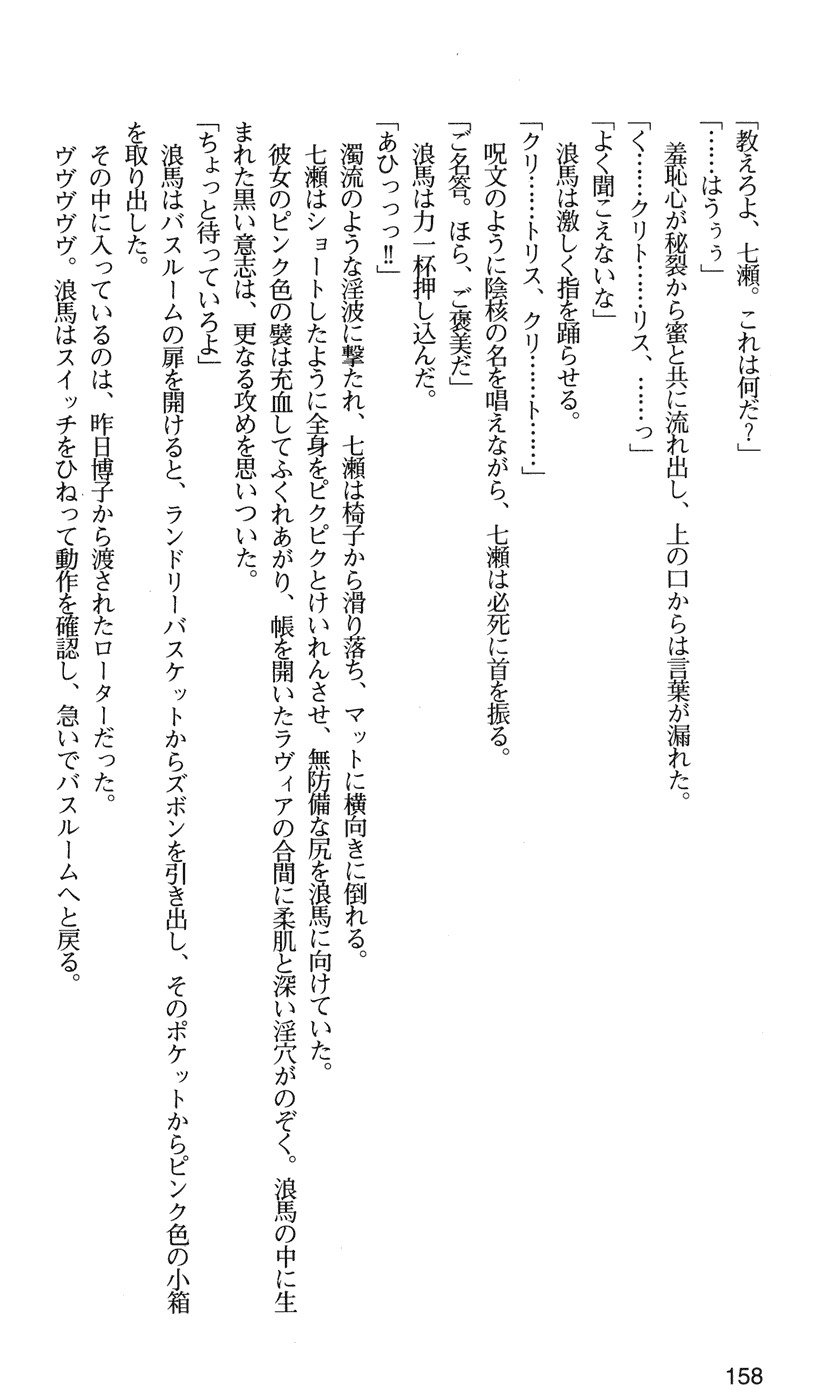 「教えろよ、七瀬。これは何だ?」
「……はうぅぅ」
羞恥心が秘裂から蜜と共に流れ出し、上の口からは言葉が漏れた。
「く……クリト……リス、……っ」
「よく聞こえないな」
浪馬は激しく指を踊らせる。
「クリ……トリス、クリ……ト……」
呪文のように陰核の名を唱えながら、七瀬は必死に首を振る。
「ご名答。ほら、ご褒美だ」
浪馬は力一杯押し込んだ。
「あひっっっ!!」
濁流のような淫波に撃たれ、七瀬は椅子から滑り落ち、マットに横向きに倒れる。
七瀬はショートしたように全身をピクピクとけいれんさせ、無防備な尻を浪馬に向けていた。
彼女のピンク色の襞は充血してふくれあがり、帳を開いたラヴィアの合間に柔肌と深い淫穴がのぞく。浪馬の中に生
まれた黒い意志は、更なる攻めを思いついた。
「ちょっと待っていろよ」
浪馬はバスルームの扉を開けると、ランドリーバスケットからズボンを引き出し、そのポケットからピンク色の小箱
を取り出した。
その中に入っているのは、昨日博子から渡されたローターだった。
ヴヴヴヴヴ。浪馬はスイッチをひねって動作を確認し、急いでバスルームへと戻る。
158